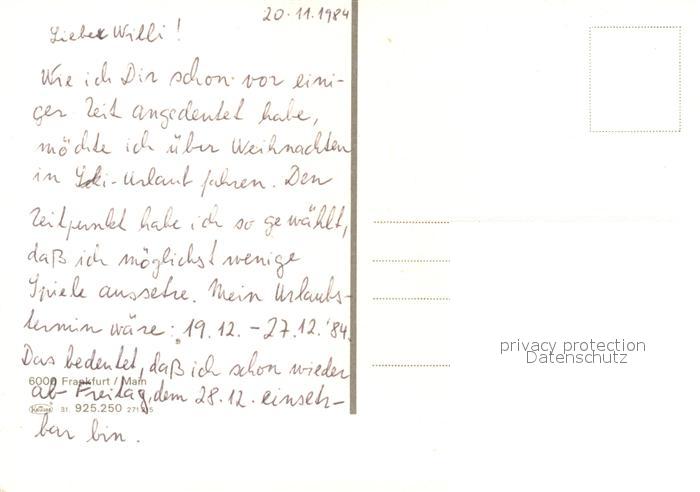 20.11.1984
Lieber Willi!
Wie ich Dir schon vor eini-
ger Zeit angedeutet habe,
möchte ich über Weihnachten
in Ski-Urlaub fahren. Den
Zeitpunkt habe ich so gewählt,
daß ich möglichst wenige
Spiele aussetze. Mein Urlaubs-
termin wäre: 19.12. - 27.12.'84.
Das bedeutet, daß ich schon wieder
ab Freitag, dem 28.12. einsetz-
bar bin.
6000 Frankfurt / Main
31. 925.250
privacy protection
Datenschutz